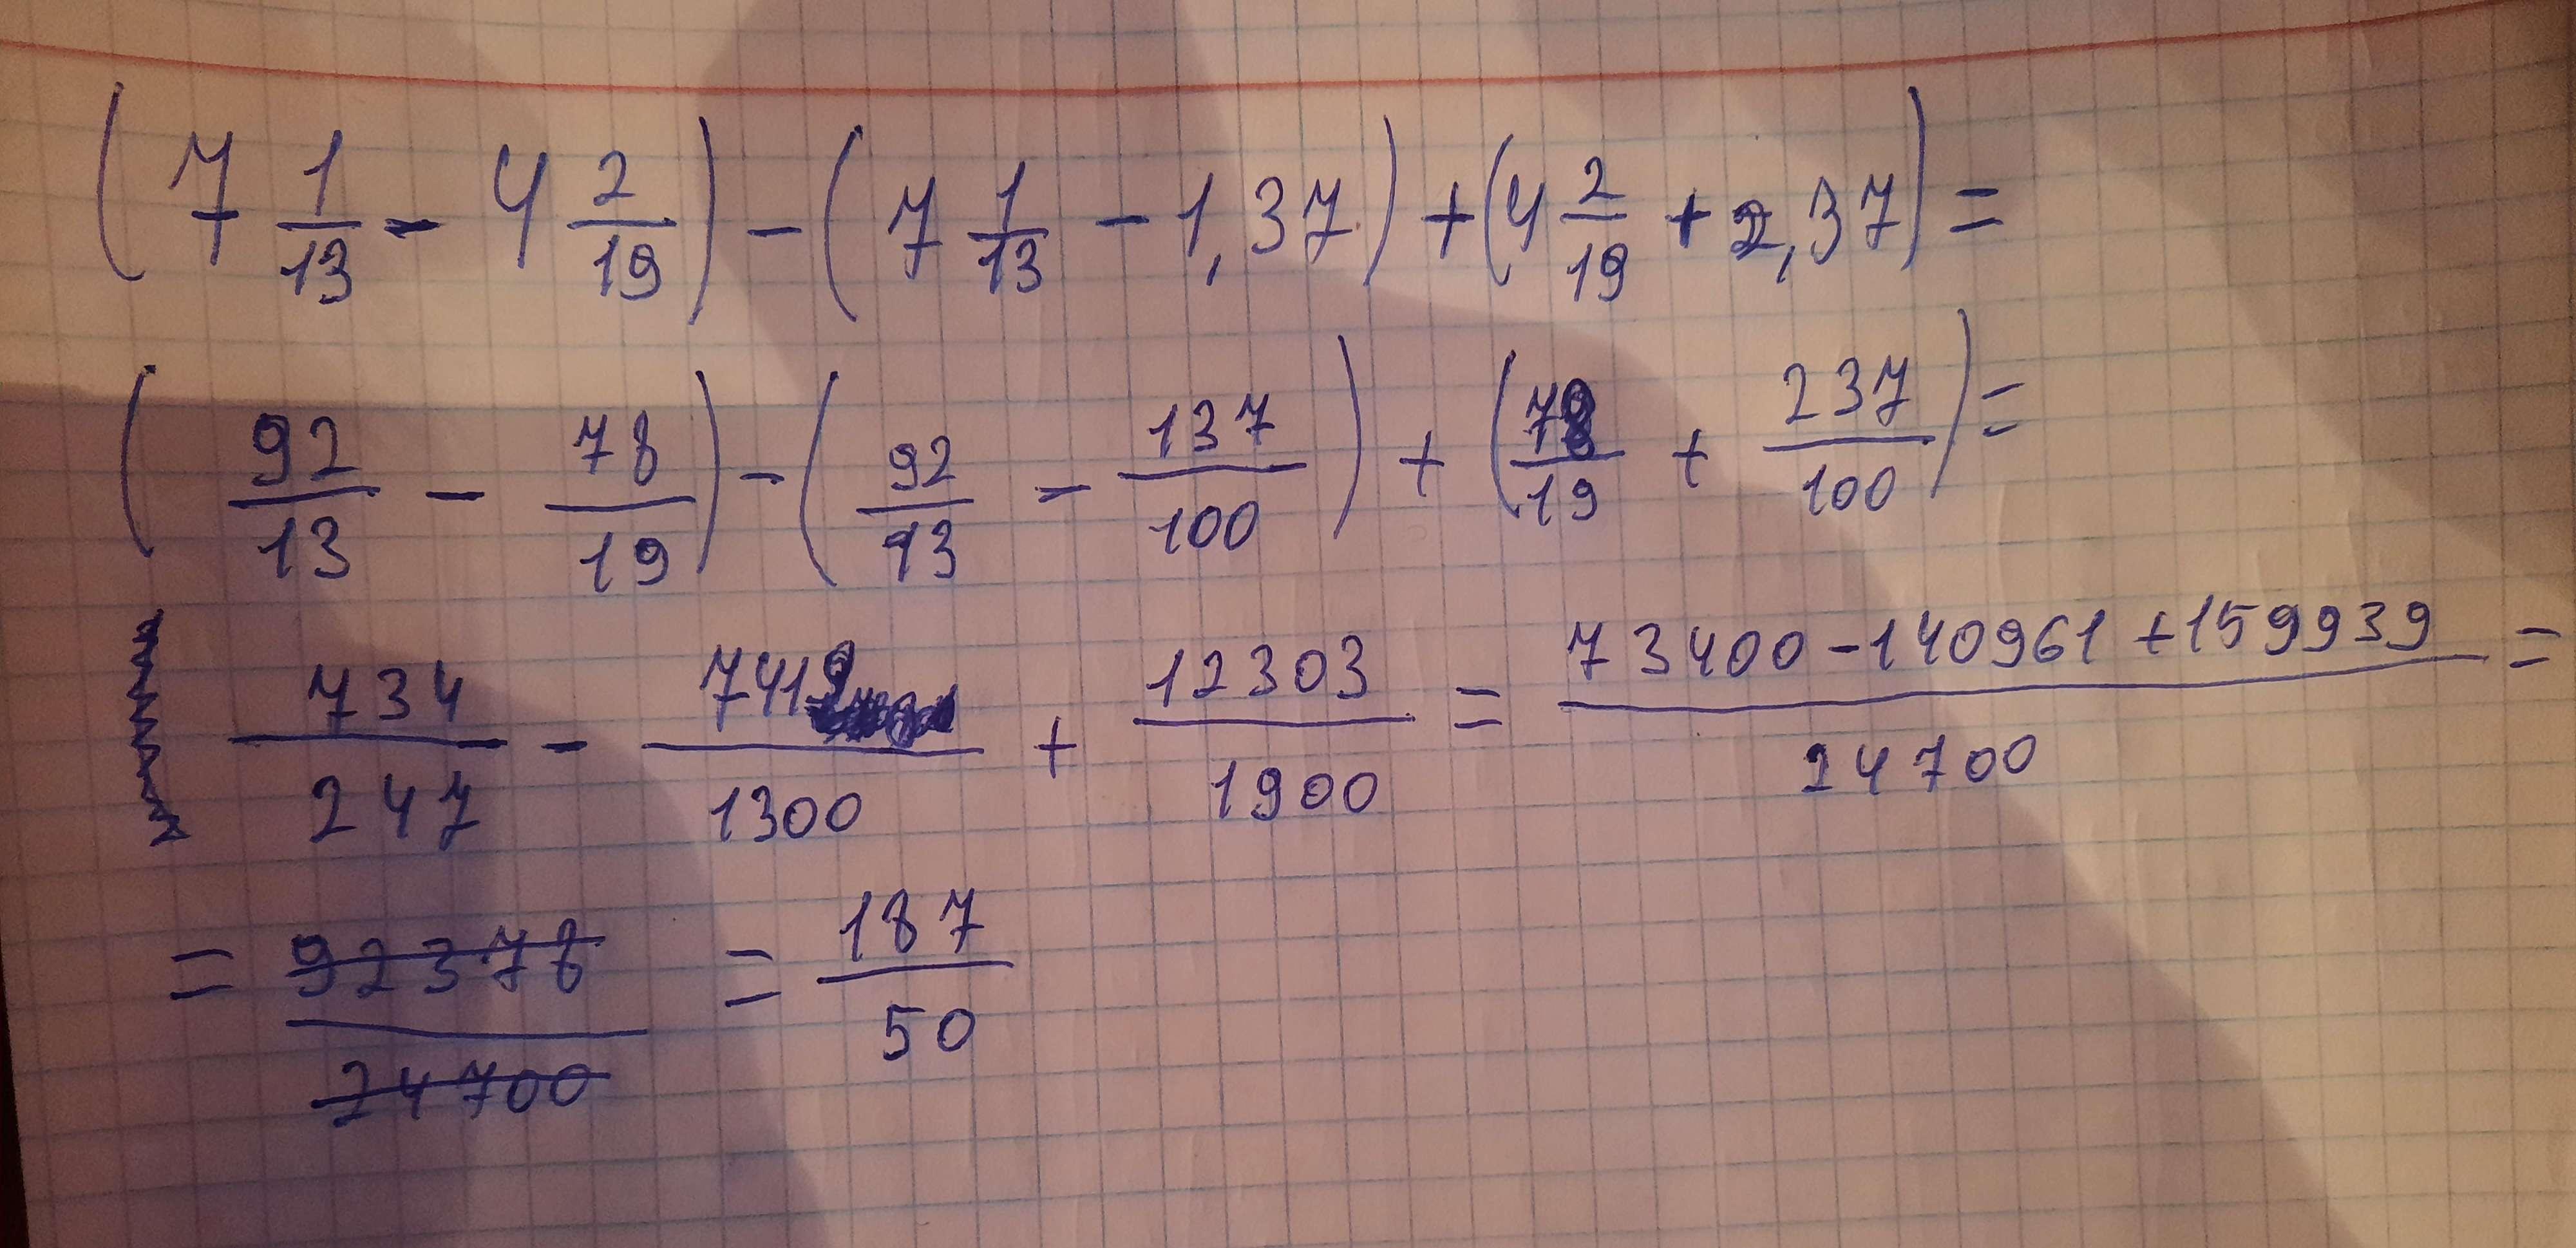 (7 1/13 - 4 2/19) - (7 1/13 - 1,37) + (4 2/19 + 2,37) =
(92/13 - 78/19) - (92/13 - 137/100) + (78/19 + 237/100) =
734/247 - 7419/1300 + 12303/1900 = (73400 - 140961 + 159939)/24700 =
= 92378/24700 = 187/50